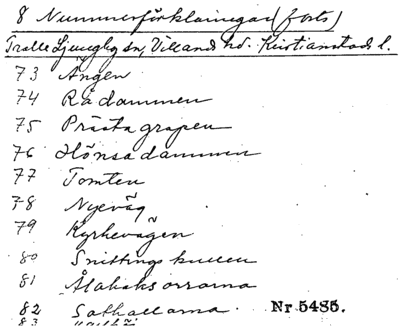 8 Nummerförklaringar (forts)
Tralle Ljungby sn, Villands hd. Kristianstads l.
73 Ängen
74 Rådammen
75 Prästagrapen
76 Hönsadammen
77 Tomten
78 Nyeväg
79 Kyrkevägen
80 Snittingskullen
81 Ålabäksorrarna
82 Sathallarna Nr 5485.
83